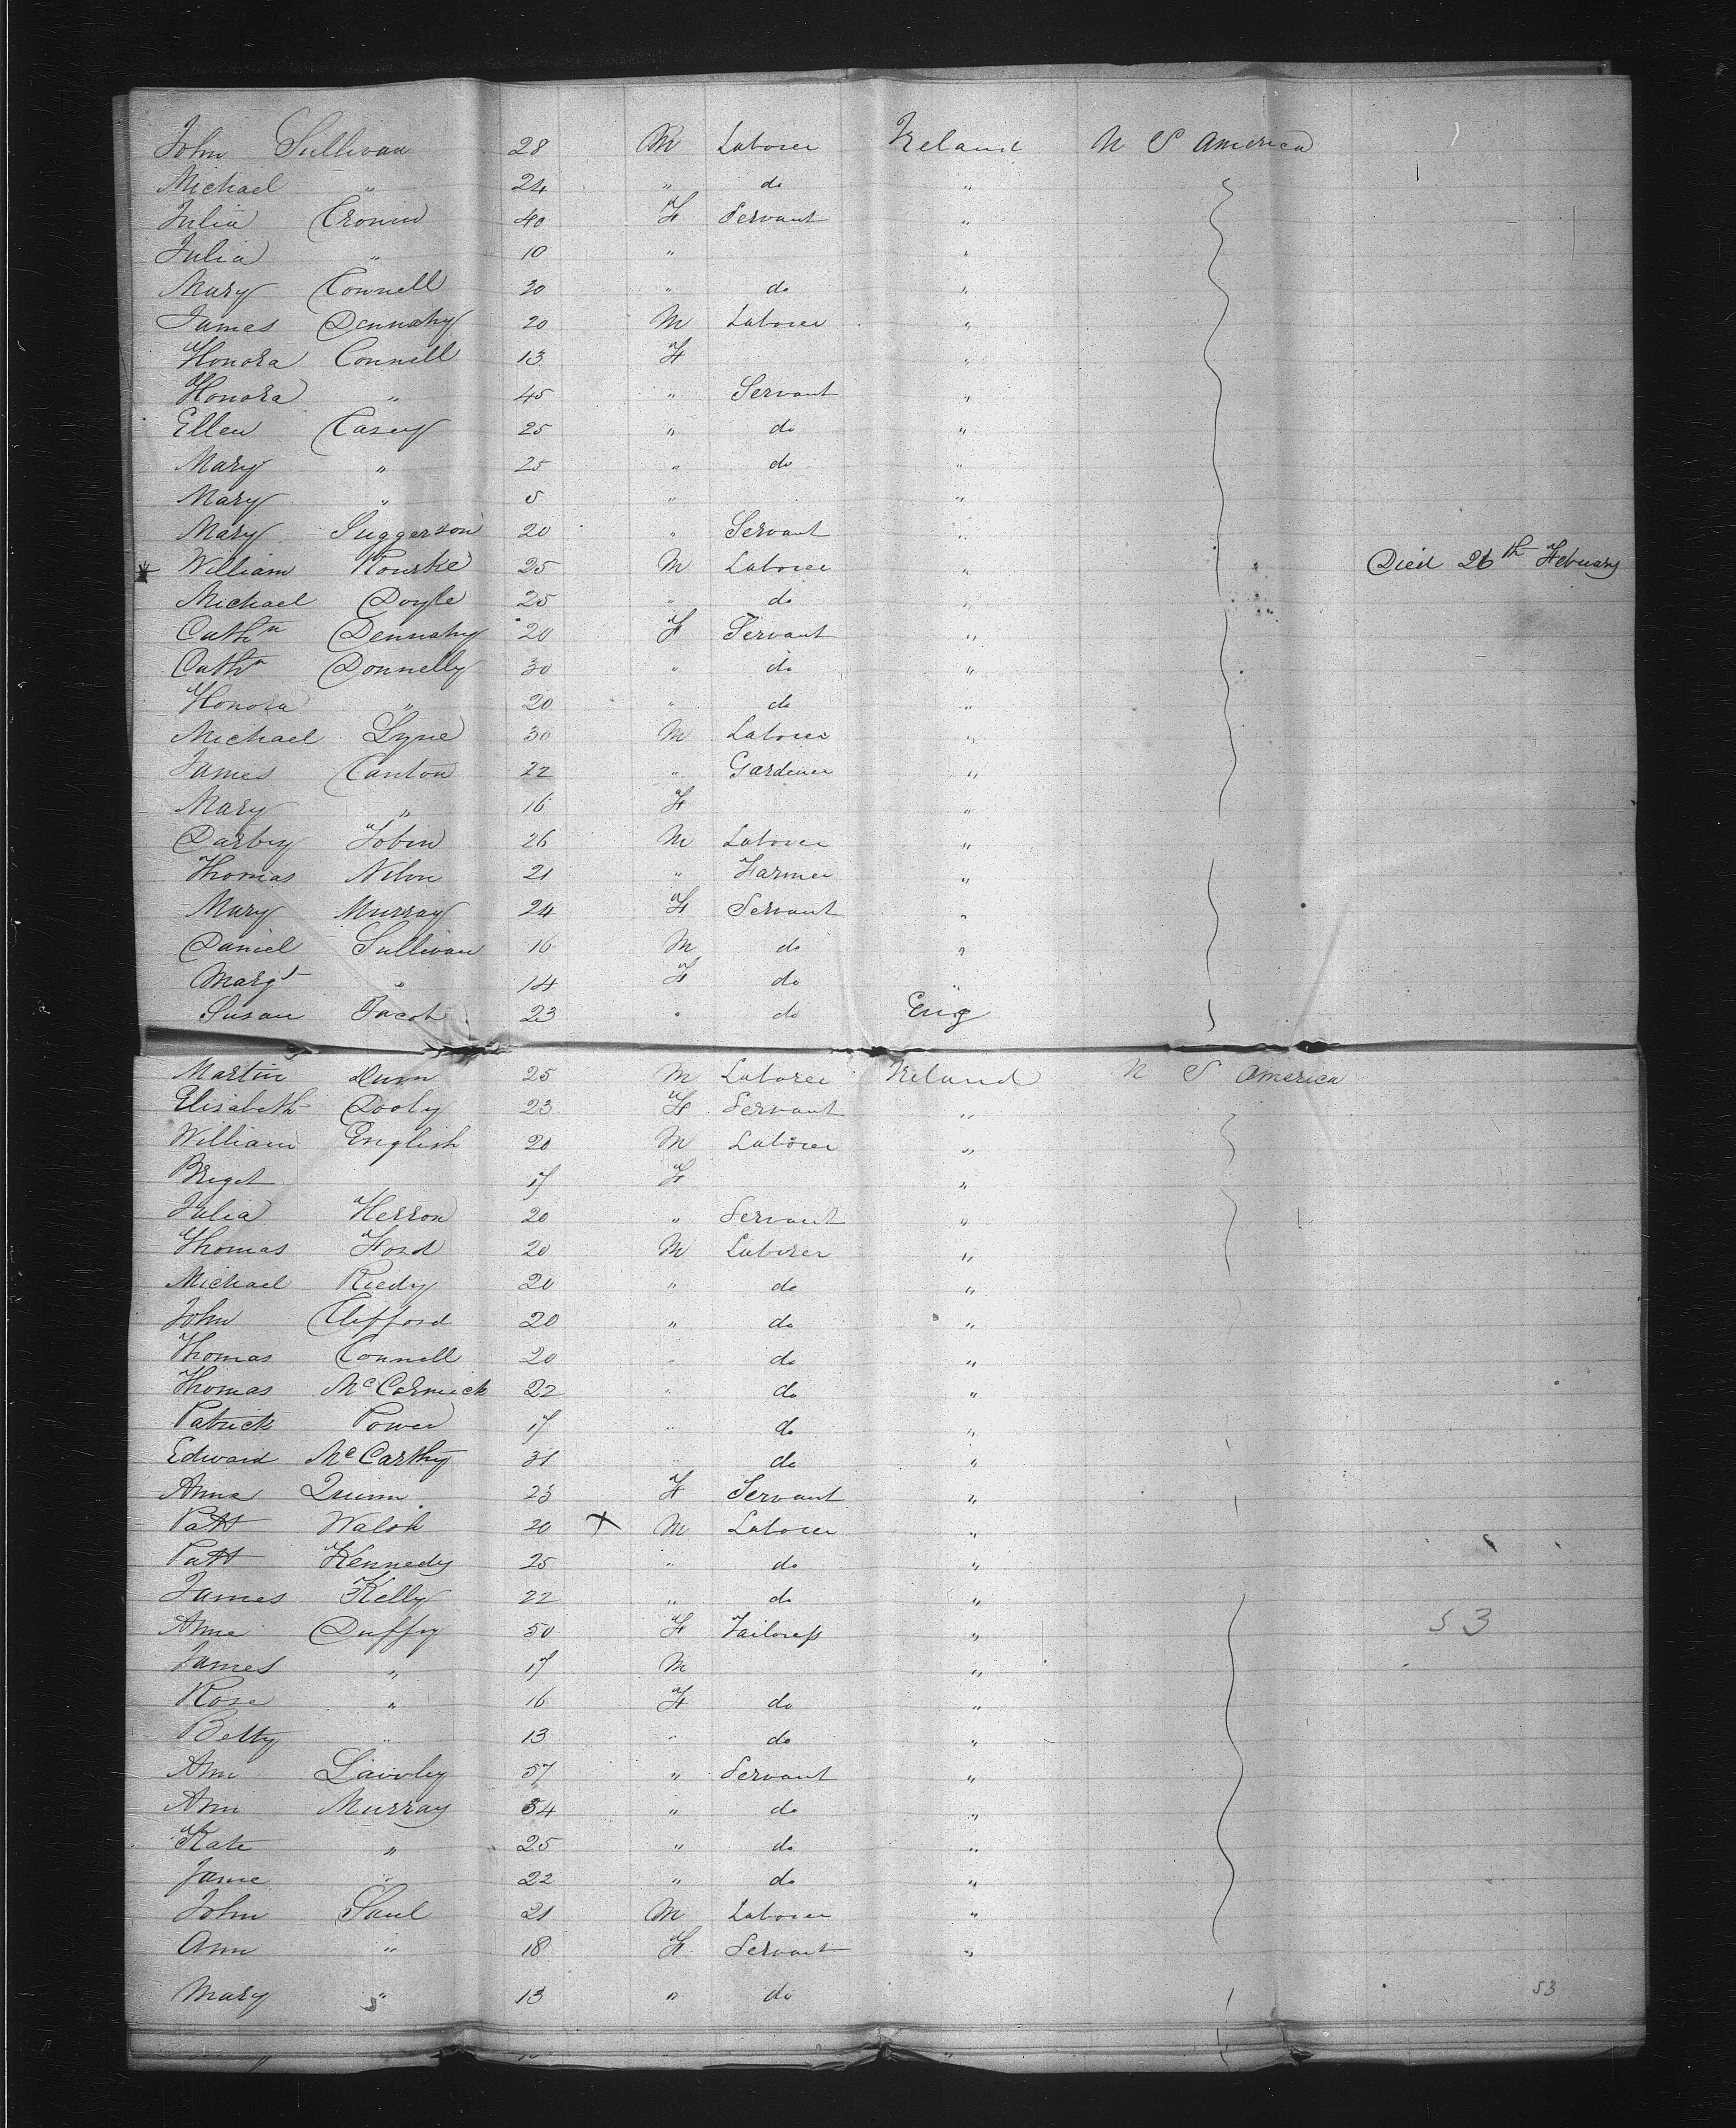 John Sullivan 28 M Laborer Ireland N S America
Michael " 24 " do "
Julia Cronin 40 F Servant "
Julia " 10 " "
Mary Connell 30 " do "
James Dennahy 20 M Laborer "
Honora Connell 13 F "
Honora " 45 " Servant "
Ellen Casey 25 " do "
Mary " 25 " do "
Mary " 5 " "
Mary Suggerson 20 " Servant "
William Rourke 25 M Laborer " Died 26th Febuary
Michael Doyle 25 " do "
Cathn Dennahy 20 F Servant "
Cathn Donnelly 30 " do "
Honora " 20 " do "
Michael Lyne 30 M Laborer "
James Canton 22 " Gardener "
Mary " 16 F "
Darby Tobin 26 M Laborer "
Thomas Nilon 21 " Farmer "
Mary Murray 24 F Servant "
Daniel Sullivan 16 M do "
Margt " 14 F do "
Susan Jacob 23 " do Eng
Martin Dunn 25 M Laborer Ireland N S America
Elisabeth Dooly 23 F Servant "
William English 20 M Laborer "
Briget 17 F "
Julia Herron 20 " Servant "
Thomas Ford 20 M Laborer "
Michael Riedy 20 " do "
John Clifford 20 " do "
Thomas Connell 20 " do "
Thomas McCormick 22 " do "
Patrick Power 17 " do "
Edward McCarthy 31 " do "
Anne Quinn 23 F Servant "
Patt Walsh 20 X M Laborer "
Patt Kennedy 25 " do "
James Kelly 22 " do "
Anne Duffy 50 F Tailoress " 53
James " 17 M "
Rose " 16 F do "
Betty " 13 " do "
Ann 57 " Servant "
Ann Murray 54 " do "
Kate " 25 " do "
Jane " 22 " do "
John Saul 21 M Laborer "
Ann " 18 F Servant "
Mary " 13 " do 53